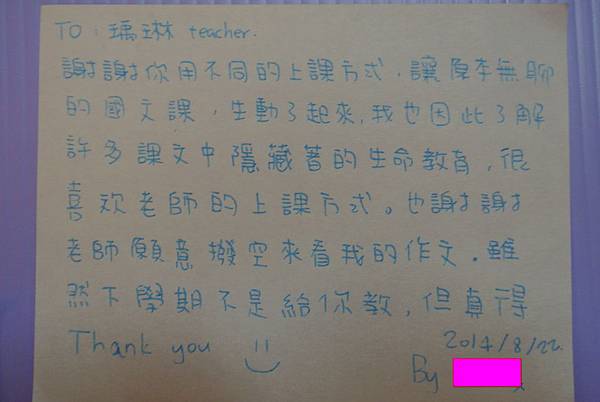 TO：瑀琳 teacher.
謝謝你用不同的上課方式，讓原本無聊
的國文課，生動了起來，我也因此了解
許多課文中隱藏著的生命教育，很
喜欢老師的上課方式。也謝謝
老師願意撥空來看我的作文。雖
然下學期不是給你教，但真得
Thank you
2014/8/22.
By